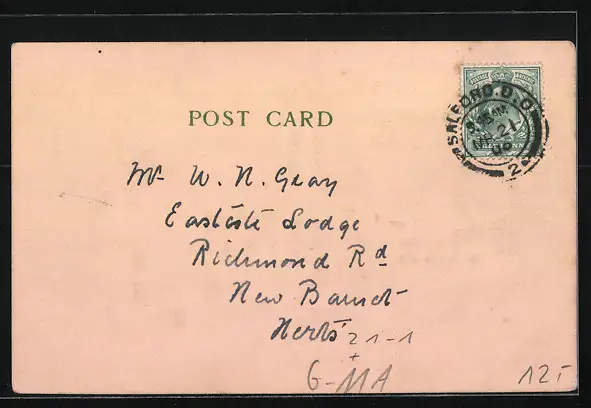 POST CARD
SALFORD.D.O
21
2
Mr W. N. Gray
Lodge
Richmond Rd
New Barnet
Herts
21-1
+
G-MA
12,-